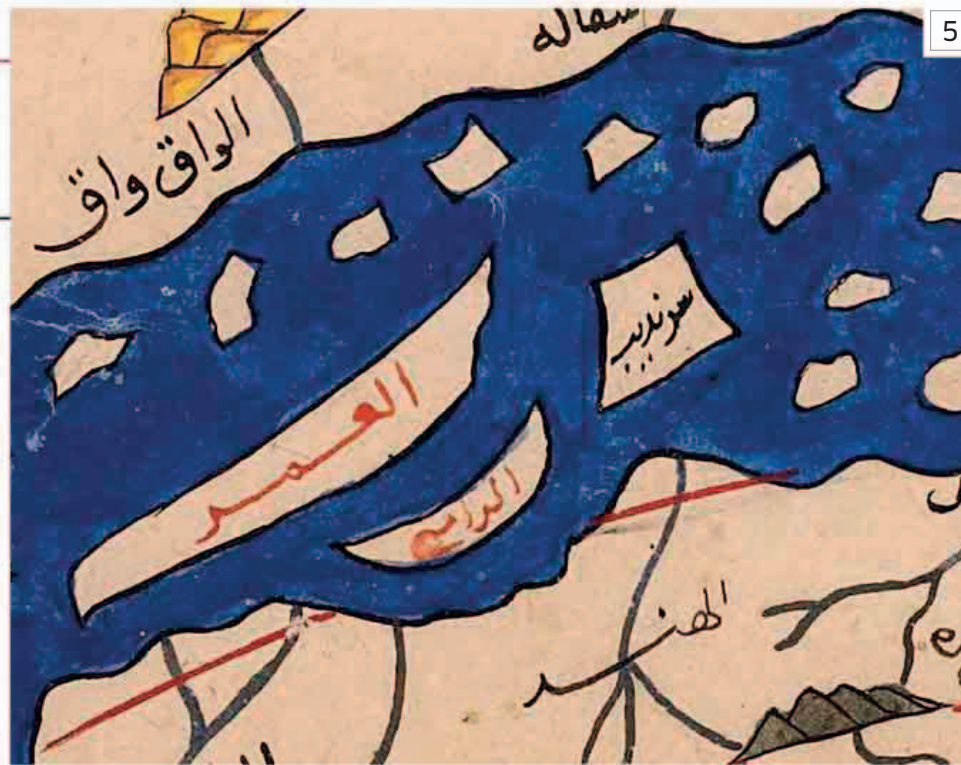 5
سفاله
الواق واق
سرنديب
العمر
الرامي
الهند